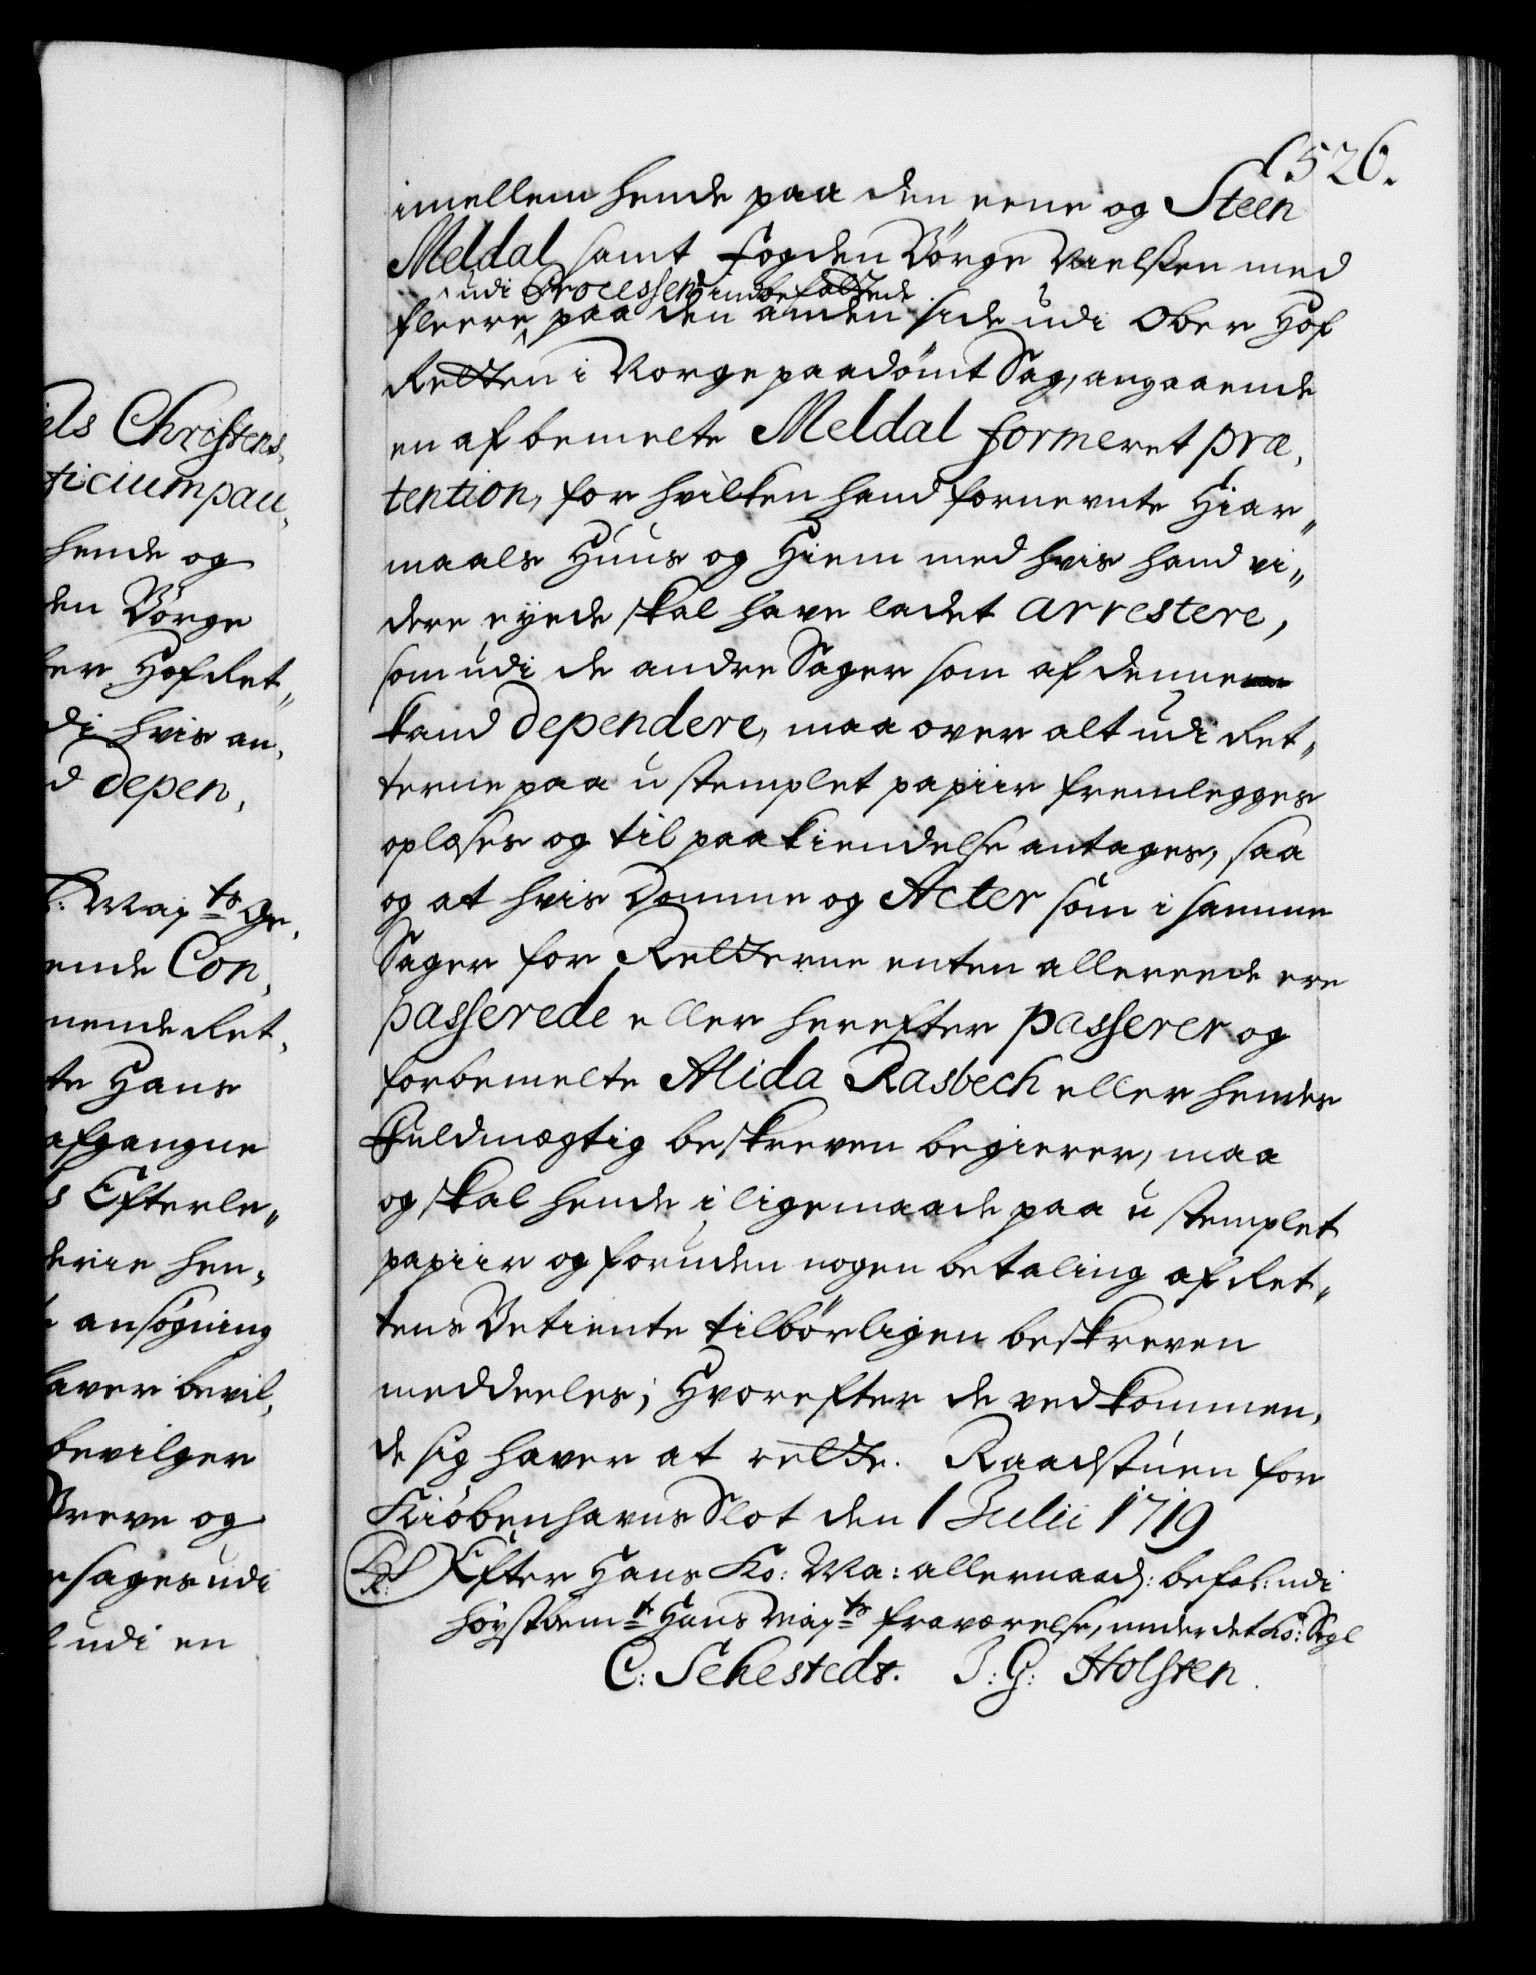 526.
imellem hende paa den eene og Steen
Meldal samt fogden Børge Nielssen med
udi Processen indbefattede
fleere paa den anden side udi Ober Hof
Retten i Norge paadømt Sag, angaaende
en af bemelte Meldal formeret præ,
tention, for hvilken hand fornevnte Hiar„
maals Huus og Hiem med hvis hand vi„
dere eyede skal have ladet arrestere,
som udi de andre Sager som af denne
kand dependere, maa over alt udi Ret„
terne paa u stemplet papiir fremlegges
oplæses og til paakiendelse antages, saa
og at hvis Domme og Acter som i samme
Sager for Retterne enten allereede ere
passerede eller herefter passerer og
forbemelte Alida Rasbech eller hendes
Fuldmægtig beskreven begierer, maa
og skal hende i ligemaade paa u stemplet
papiir og foruden nogen betaling af Ret„
tens Betiente tilbørligen beskreven
meddeeles; Hvorefter de vedkommen,
de sig haver at rette. Raadstuen for
Kiøbenhavns Slot den 1 Julii 1719
Efter Hans Ko: Ma: allernaad: befal: udi
høystbemte Hans Mayts fraværelse, under det Ko: Segl
C: Sehestedt. J: G: Holsten.
els Christens,
ticium pau,
hende og
den Børge
ber Hof Ret„
di hvis an,
d depen,
Mayts Ge,
ende Con,
nende Ret,
te Hans
afgangne
s Efterle„
derie hen,
ansøgning
haver bevil,
bevilger
Breve og
esages udi
udi en